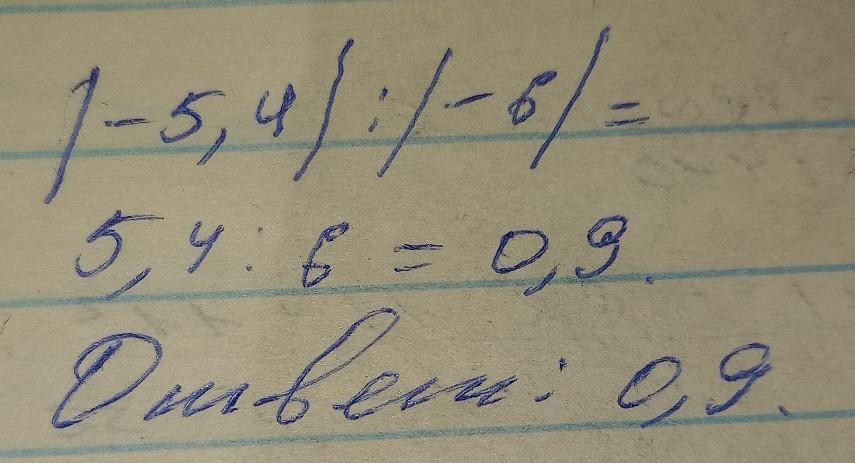 |-5,4| : |-6| =
5,4 : 6 = 0,9.
Ответ: 0,9.